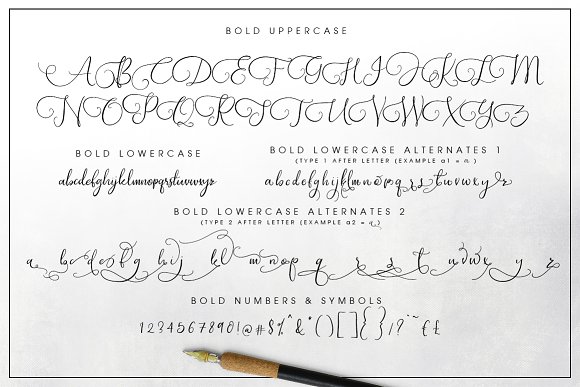 BOLD UPPERCASE
ABCDEFGHIJKLM
NOPQRSTUVWXYZ
BOLD LOWERCASE
abcdefghijklmnopqrstuvwxyz
BOLD LOWERCASE ALTERNATES 1
(TYPE 1 AFTER LETTER (EXAMPLE a1 = a)
abcdefghijklmnopqrstuvwxyz
BOLD LOWERCASE ALTERNATES 2
(TYPE 2 AFTER LETTER (EXAMPLE a2 = a)
abcdefghijklmnopqrstuvwxyz
BOLD NUMBERS & SYMBOLS
1234567890!@#$%^&*()[]{}/?`~¢£